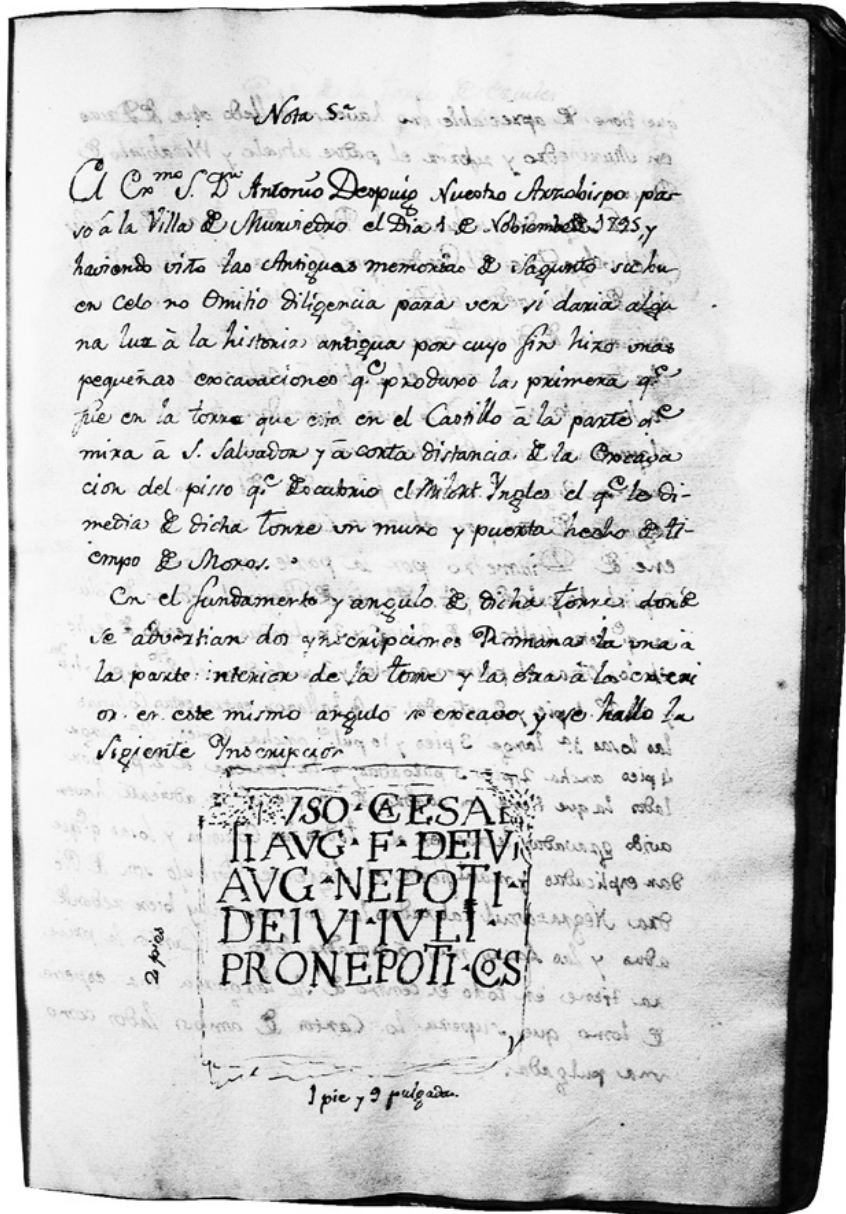 Nota 5.ª
El Exmo S. Dn Antonio Despuig Nuestro Arzobispo pa-
só à la Villa de Murviedro el Dia 1 de Nobiembre de 1795, y
haviendo visto las Antiguas memorias de Sagunto su bu
en celo no Omitio diligencia para ver si daria algu
na luz à la historia antigua por cuyo fin hizo unas
pequeñas excavaciones q.e produxo la primera q.e
fue en la torre que esta en el Castillo à la parte q.e
mira à S. Salvador y à corta distancia de la Excava
cion del pisso q.e Descubrio el Milort Yngles el q.e le di-
media de dicha torre un muro y puerta hecho de ti-
empo de Moros.
En el fundamento y angulo de dicha torre donde
se advertian dos ynscripciones Romanas la una à
la parte interior de la torre y la otra à la exteri
or en este mismo angulo se excavo, y se hallo la
sigiente Ynscripcion
/SO · CAESA
II AVG · F · DEIVI
AVG · NEPOTI ·
DEIVI · IVLI ·
PRONEPOTI · COS
2 pies
1 pie y 9 pulgadas.